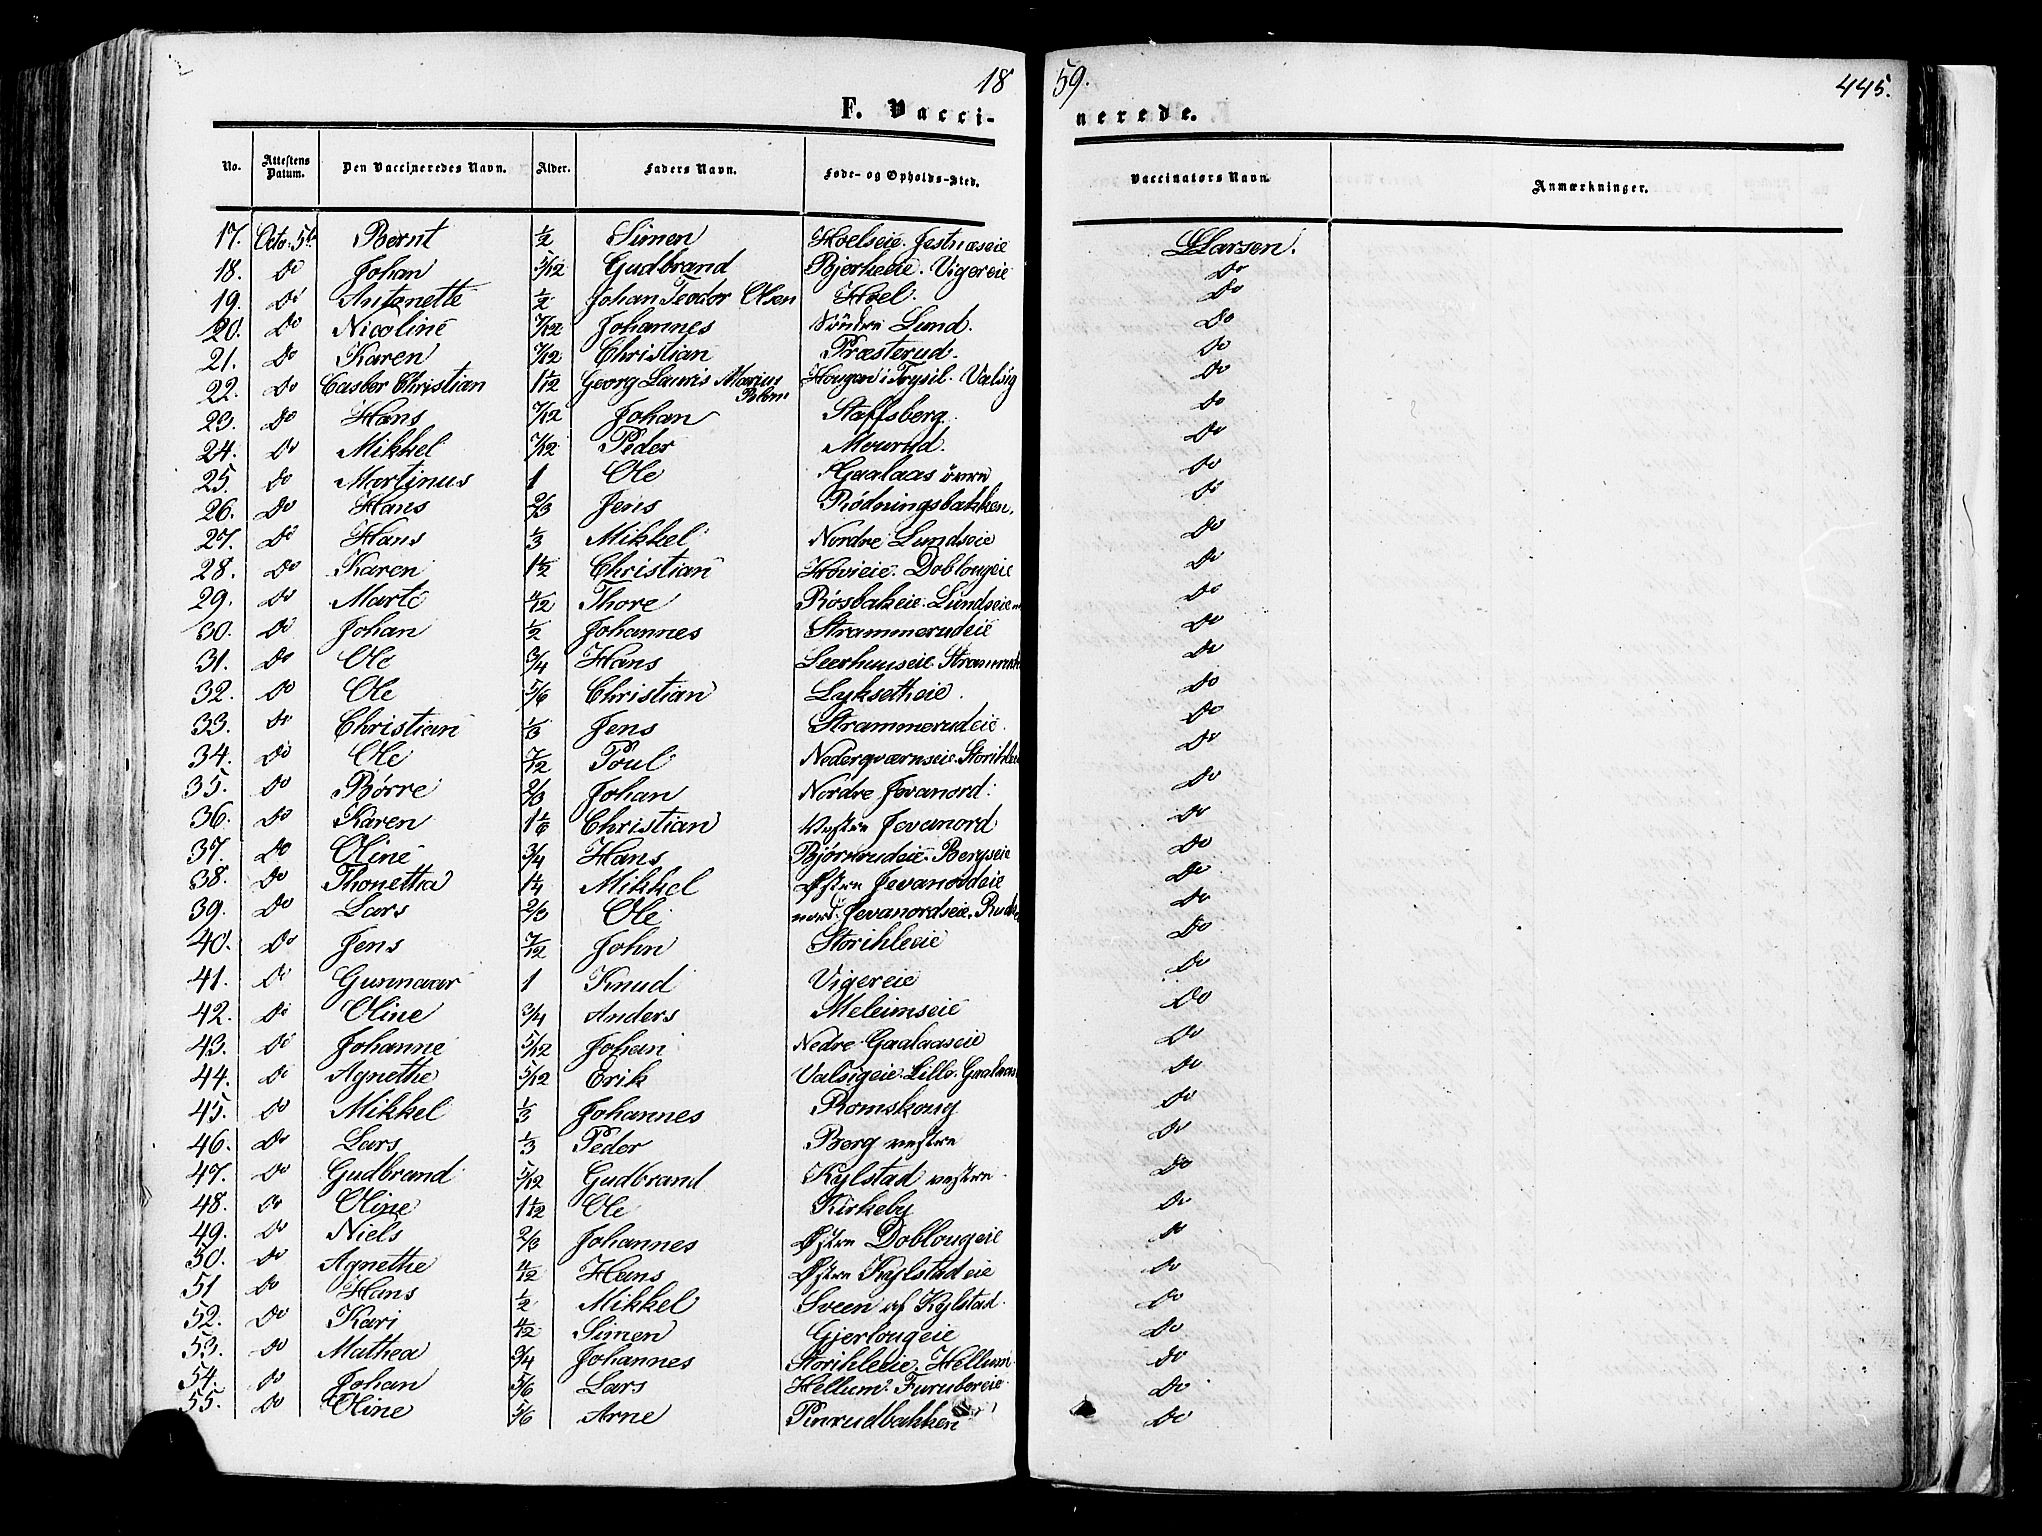 18 59. 445.
F. Vaccinerede.
No. Attestens Datum. Den Vaccineredes Navn. Alder. Faders Navn. Føde- og Opholds-Sted. Vaccinators Navn. Anmærkninger.
17. Octo. 5te Bernt 1/2 Simen Hoelseie. Jestnæseie LLarsen.
18. Do Johan 5/12 Gudbrand Bjerkeeie. Vigereie Do
19. Do Antonette 1/2 Johan Teodor Olsen Hoel. Do
20. Do Nicoline 7/12 Johannes Söndre Lund. Do
21. Do Karen 7/12 Christian Præsterud. Do
22. Do Castor Christian 1 1/12 Georg Lauris Marius Blom Hougen i Trysil. Valsig Do
23. Do Hans 7/12 Johan Staffsberg. Do
24. Do Mikkel 7/12 Peder Mourud. Do
25. Do Martinus 1 Ole Gaalaas övre Do
26. Do Hans 2/3 Jens Rödningsbakken. Do
27. Do Hans 1/3 Mikkel Nordre Lundseie Do
28. Do Karen 1 1/2 Christian Hovieie. Doblougeie Do
29. Do Marte 4/12 Thore Rösbakeie. Lundseie Do
30. Do Johan 1/2 Johannes Strammerudeie Do
31. Do Ole 3/4 Hans Leerhuuseie. Do
32. Do Ole 5/6 Christian Lyksetheie. Do
33. Do Christian 1/3 Jens Strammerudeie. Do
34. Do Ole 7/12 Poul Nederqværnseie. Do
35. Do Börre 2/3 Johan Nordre Jevanord. Do
36. Do Karen 1 1/6 Christian Vestre Jevanord Do
37. Do Oline 3/4 Hans Björnrudeie. Bergseie Do
38. Do Thonetha 1 1/4 Mikkel Østre Jevanordeie Do
39. Do Lars 2/3 Ole nord. Jevanordseie. Do
40. Do Jens 7/12 John Storihleeie Do
41. Do Gunnaar 1 Knud Vigereie Do
42. Do Oline 3/4 Anders Meleimseie Do
43. Do Johanne 5/12 Johan Nedre Gaalaaseie Do
44. Do Agnethe 5/12 Erik Valsigeie. Lille. Do
45. Do Mikkel 1/3 Johannes Romskoug Do
46. Do Lars 1/3 Peder Berg vestre Do
47. Do Gudbrand 5/12 Gudbrand Kylstad vestre. Do
48. Do Oline 1 1/12 Ole Kirkeby Do
49. Do Niels 2/3 Johannes Østre Doblougeie Do
50. Do Agnethe 4/12 Hans Østre Kylstadeie Do
51 Do Hans 1/2 Mikkel Sveen af Kylstad. Do
52. Do Kari 4/12 Simen Gjerlougeie Do
53. Do Mathea 3/4 Johannes Storihleeie. Hellum. Do
54. Do Johan 5/6 Lars Hellum. Furubereie Do
55. Do Oline 5/6 Arne Pinrudbakken Do